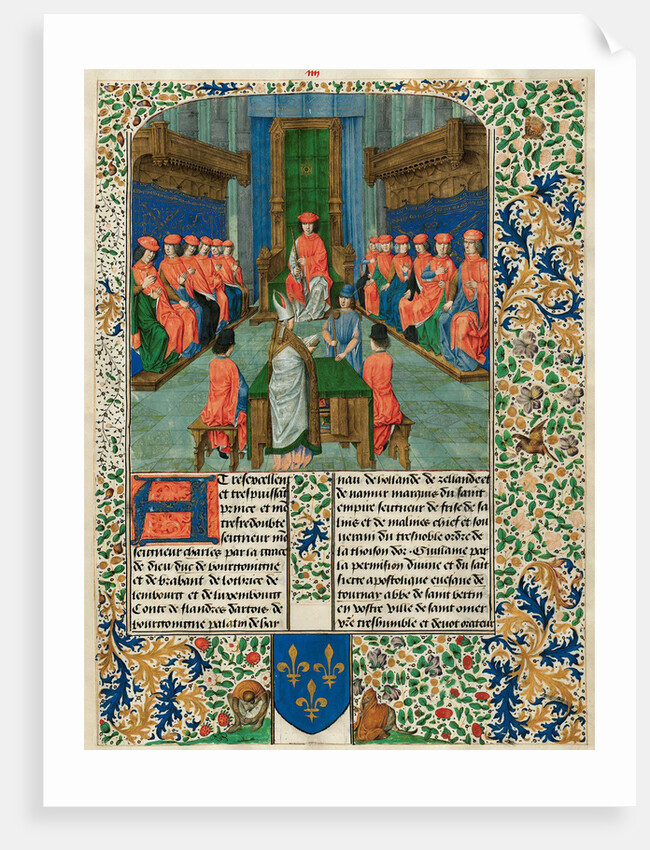 A Tresexcellent
et trespuissāt
prince et mō
tresredoubte
seigneur mō
seigneur charles par la grace
de dieu duc de bourgoingne
et de brabant de lothric de
lembourg et de luxembourg
Conte de flandres dartois de
bourgoingne palatin de hay
nau de hollande de zellande et
de namur marquis du saint
empire seigneur de frise de sa
lins et de malines chief et sou
verain du tresnoble ordre de
la thoison dor. Guillame par
la permission divine et du saīt
siege apostolique evesque de
tournay abbe de saint bertin
en vostre ville de saint omer
vr̄e treshumble et devot orateur